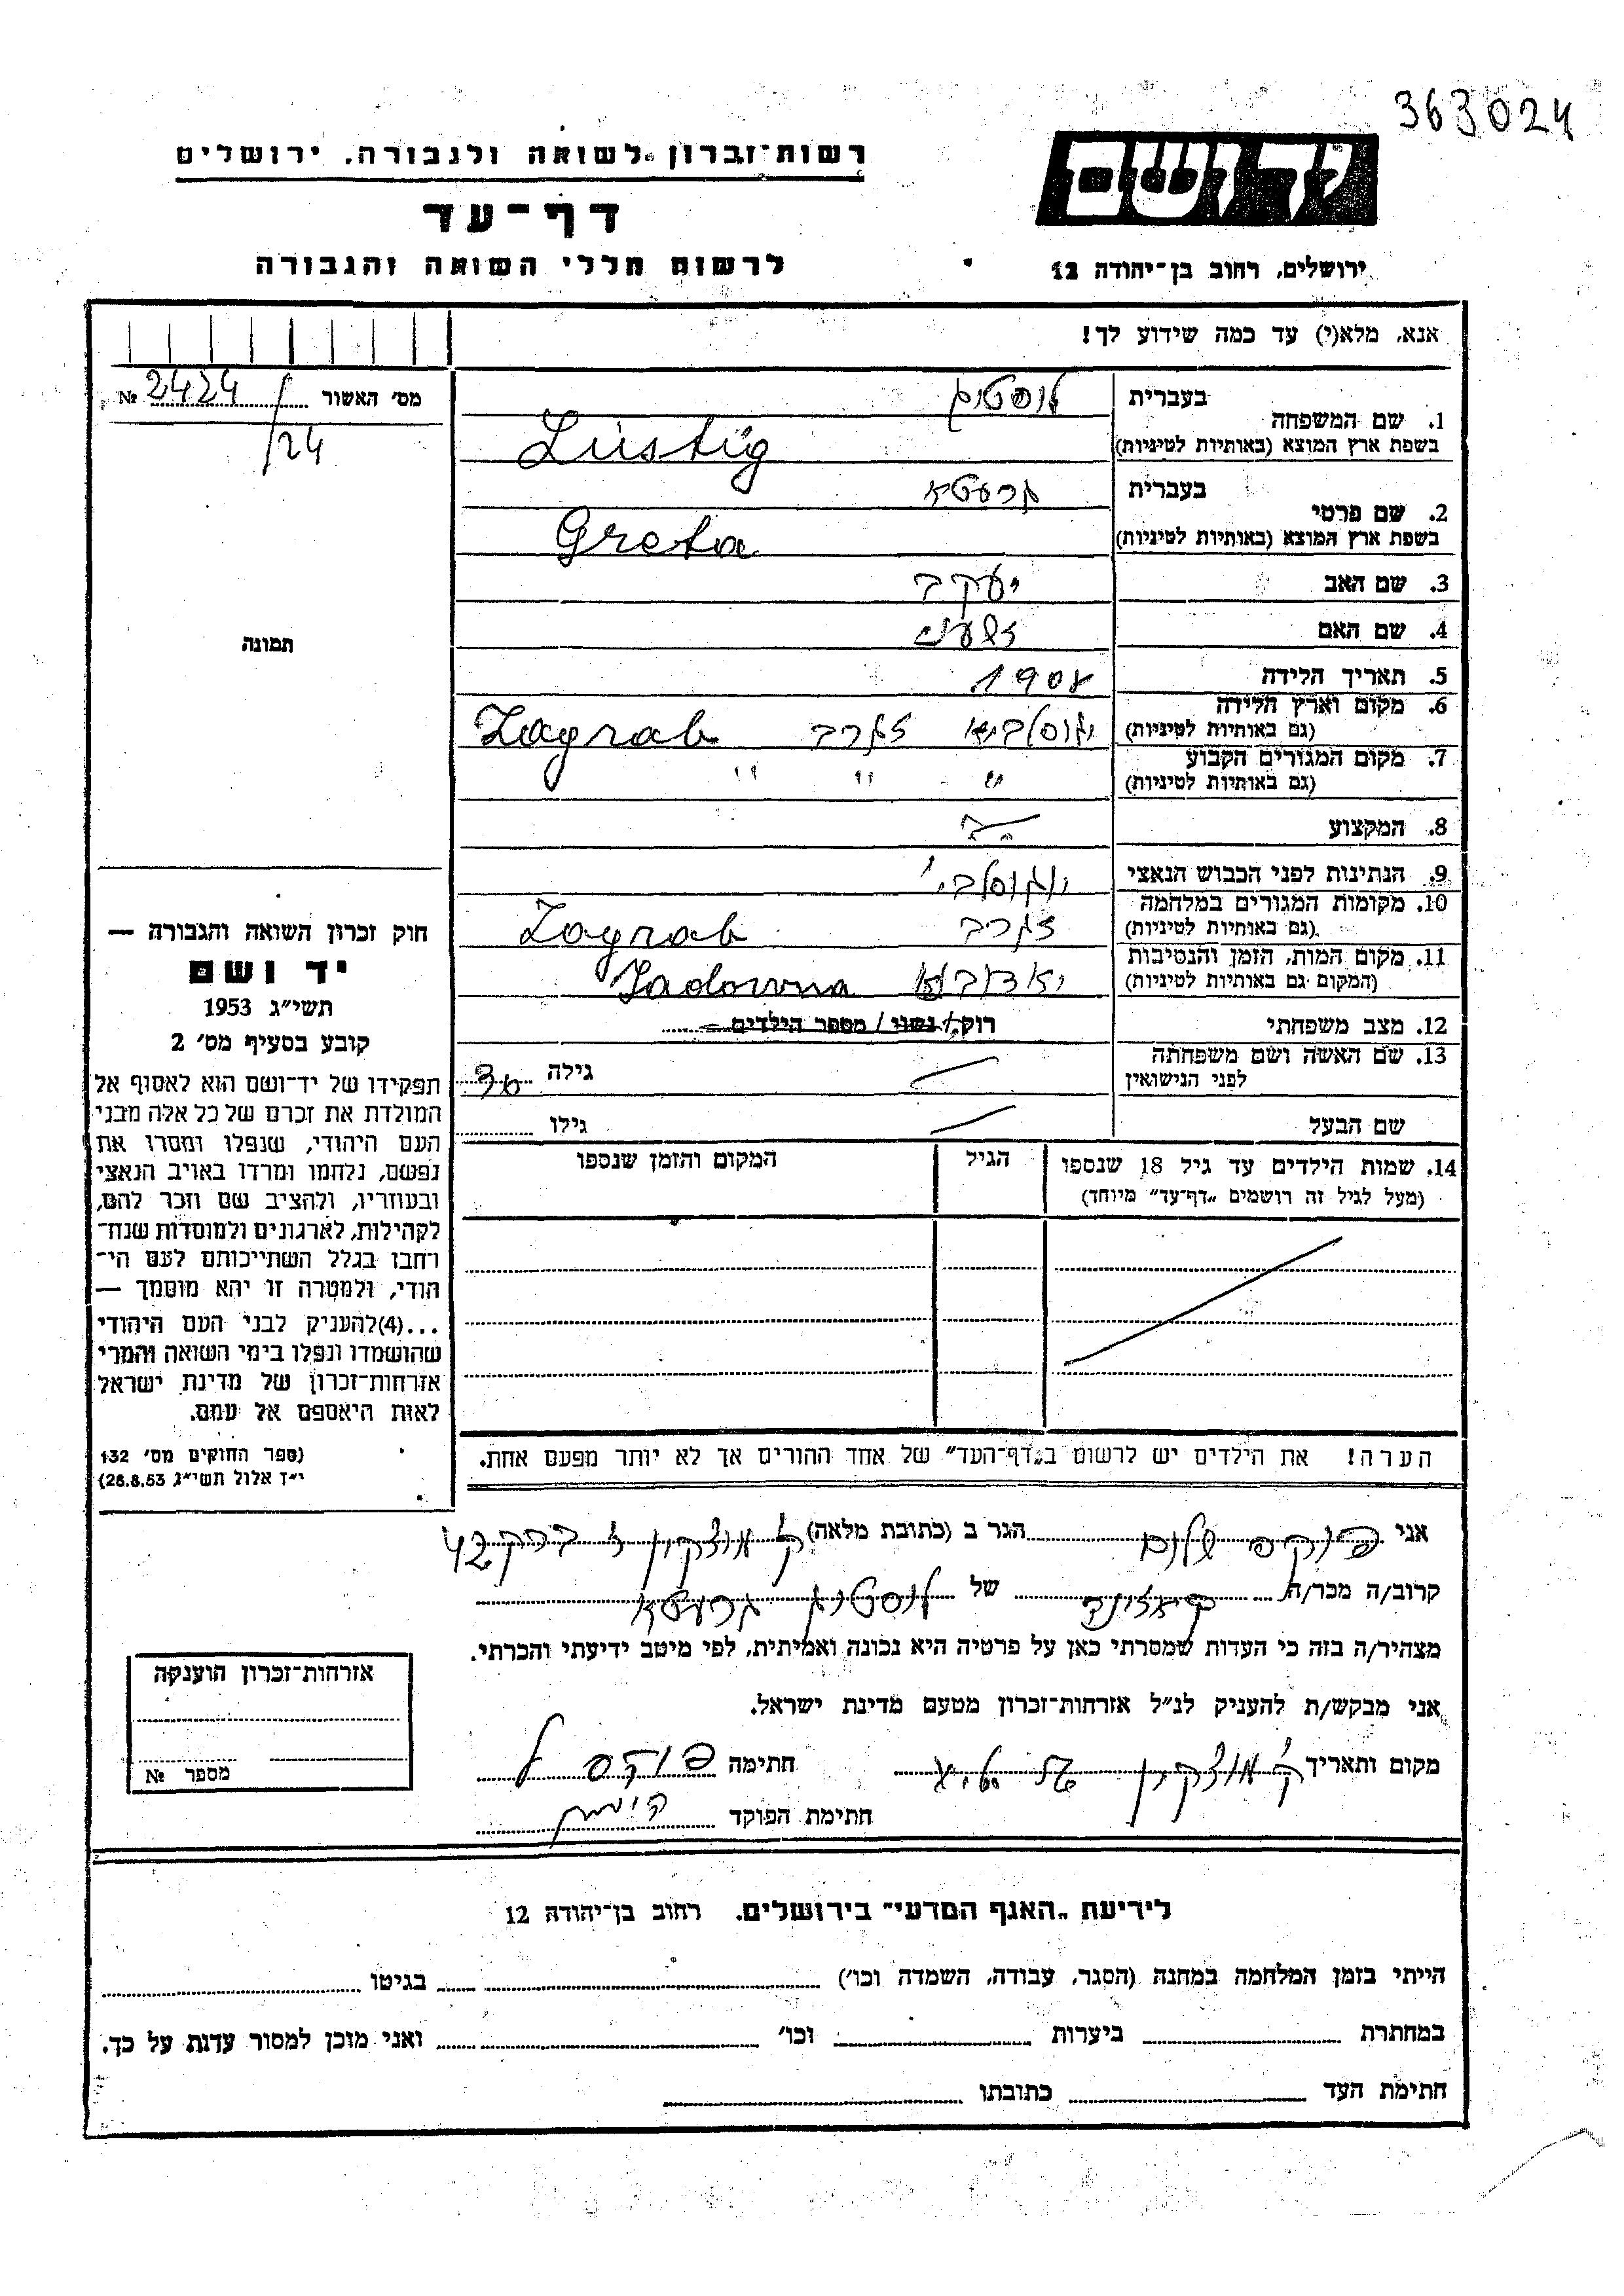 363024
רשות־זכרון לשואה ולגבורה, ירושלים
יד ושם
דף־עד
לרשום חללי השואה והגבורה
ירושלים, רחוב בן־יהודה 12
אנא, מלא(י) עד כמה שידוע לך!
מס׳ האשור 2424 №
/24
תמונה
1. שם המשפחה בעברית לוסטיג
בשפת ארץ המוצא (באותיות לטיניות) Lustig
2. שם פרטי בעברית גרעטא
בשפת ארץ המוצא (באותיות לטיניות) Greta
3. שם האב יעקב
4. שם האם
5. תאריך הלידה 1908
6. מקום וארץ הלידה יוגוסלביא זגרב Zagrab
(גם באותיות לטיניות)
7. מקום המגורים הקבוע " " "
(גם באותיות לטיניות)
8. המקצוע
9. הנתינות לפני הכבוש הנאצי יוגוסלבי׳
10. מקומות המגורים במלחמה זגרב Zagrab
(גם באותיות לטיניות)
11. מקום המות, הזמן והנסיבות יאדובנא Jadowna
(המקום גם באותיות לטיניות)
12. מצב משפחתי רוק/ נשוי / מספר הילדים
13. שם האשה ושם משפחתה גילה
לפני הנישואין
שם הבעל גילו
14. שמות הילדים עד גיל 18 שנספו הגיל המקום והזמן שנספו
(מעל לגיל זה רושמים „דף־עד״ מיוחד)
הערה! את הילדים יש לרשום ב„דף־העד״ של אחד ההורים אך לא יותר מפעם אחת.
חוק זכרון השואה והגבורה —
יד ושם
תשי״ג 1953
קובע בסעיף מס׳ 2
תפקידו של יד־ושם הוא לאסוף אל
המולדת את זכרם של כל אלה מבני
העם היהודי, שנפלו ומסרו את
נפשם, נלחמו ומרדו באויב הנאצי
ובעוזריו, ולהציב שם וזכר להם,
לקהילות, לארגונים ולמוסדות שנח־
רבו בגלל השתייכותם לעם הי־
הודי, ולמטרה זו יהא מוסמך —
...(4) להעניק לבני העם היהודי
שהושמדו ונפלו בימי השואה והמרי
אזרחות־זכרון של מדינת ישראל
לאות היאספם אל עמם.
(ספר החוקים מס׳ 132
י״ז אלול תשי״ג 28.8.53)
אני פוקס שלום הגר ב (כתובת מלאה) ק מוצקין 42
קרוב/ה מכר/ה של לוסטיג גרעטא
מצהיר/ה בזה כי העדות שמסרתי כאן על פרטיה היא נכונה ואמיתית, לפי מיטב ידיעתי והכרתי.
אני מבקש/ת להעניק לנ״ל אזרחות־זכרון מטעם מדינת ישראל.
מקום ותאריך ק מוצקין חתימה פוקס
חתימת הפוקד
אזרחות־זכרון הוענקה
מספר №
לידיעת „האגף המדעי״ בירושלים. רחוב בן־יהודה 12
הייתי בזמן המלחמה במחנה (הסגר, עבודה, השמדה וכו׳) בגיטו
במחתרת ביערות וכו׳ ואני מוכן למסור עדות על כך.
חתימת העד כתובתו